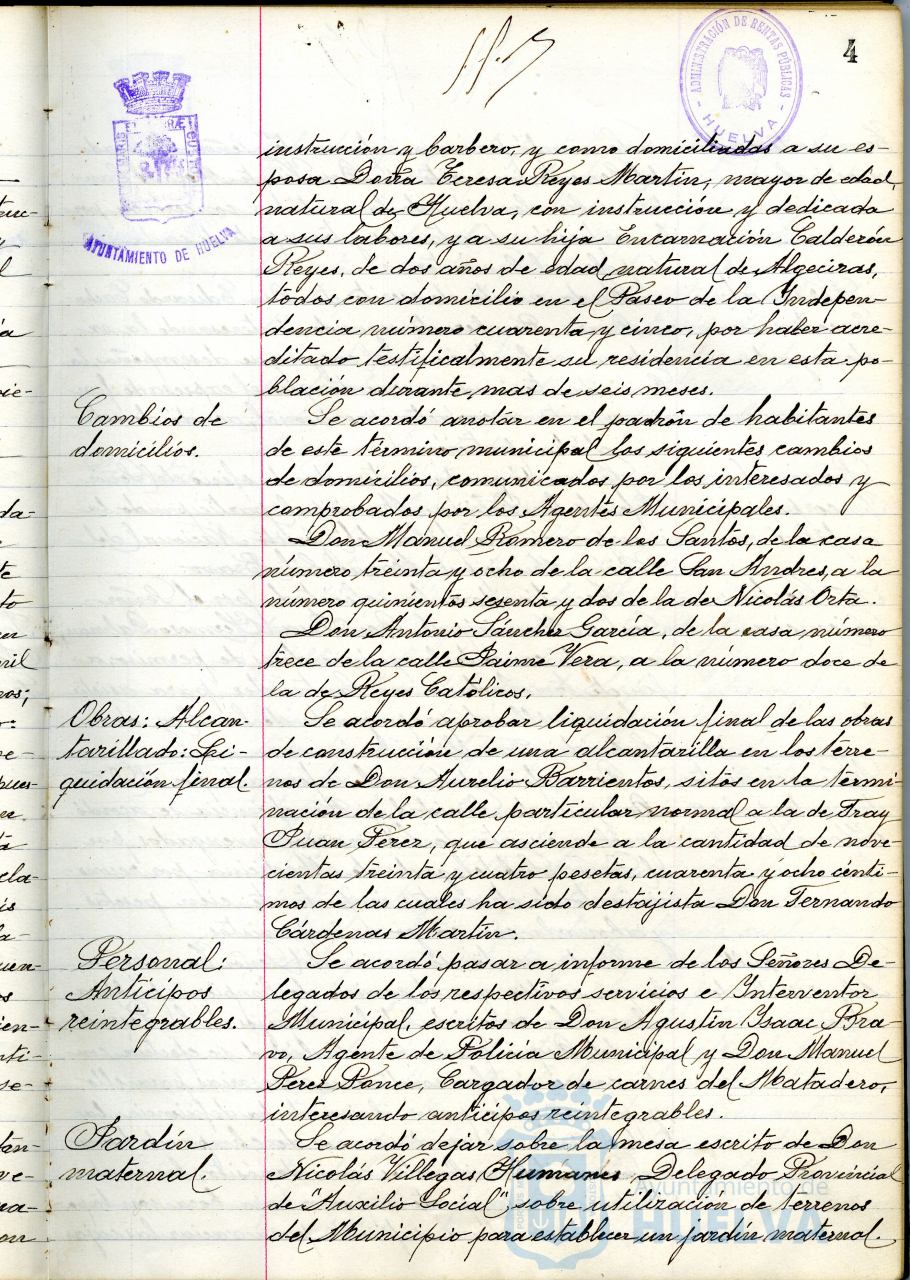 4
ADMINISTRACIÓN DE RENTAS PÚBLICAS
HUELVA
AYUNTAMIENTO DE HUELVA
instrucción y barbero, y como domiciliadas a su es-
posa Doña Teresa Reyes Martín, mayor de edad,
natural de Huelva, con instrucción y dedicada
a sus labores, y a su hija Encarnación Calderón
Reyes, de dos años de edad natural de Algeciras,
todos con domicilio en el Paseo de la Indepen-
dencia número cuarenta y cinco, por haber acre-
ditado testificalmente su residencia en esta po-
blación durante mas de seis meses.
Cambios de
domicilios.
Se acordó anotar en el padrón de habitantes
de este término municipal los siguientes cambios
de domicilios, comunicados por los interesados y
comprobados por los Agentes Municipales.
Don Manuel Romero de los Santos, de la casa
número treinta y ocho de la calle San Andres, a la
número quinientos sesenta y dos de la de Nicolás Orta.
Don Antonio Sánchez García, de la casa número
trece de la calle Jaime Vera, a la número doce de
la de Reyes Católicos.
Obras: Alcan-
tarillado: Li-
quidación final.
Se acordó aprobar liquidación final de las obras
de construcción de una alcantarilla en los terre-
nos de Don Aurelio Barrientos, sitos en la termi-
nación de la calle particular normal a la de Fray
Juan Pérez, que asciende a la cantidad de nove-
cientas treinta y cuatro pesetas, cuarenta y ocho cénti-
mos de las cuales ha sido destajista Don Fernando
Cárdenas Martín.
Personal:
Anticipos
reintegrables.
Se acordó pasar a informe de los Señores De-
legados de los respectivos servicios e Interventor
Municipal, escritos de Don Agustín Isaac Bra-
vo, Agente de Policía Municipal y Don Manuel
Pérez Ponce, Cargador de carnes del Matadero,
interesando anticipos reintegrables.
Jardín
maternal.
Se acordó dejar sobre la mesa escrito de Don
Nicolás Villegas Humanes, Delegado Provincial
de "Auxilio Social", sobre utilización de terrenos
del Municipio para establecer un jardín maternal.
Ayuntamiento de
HUELVA